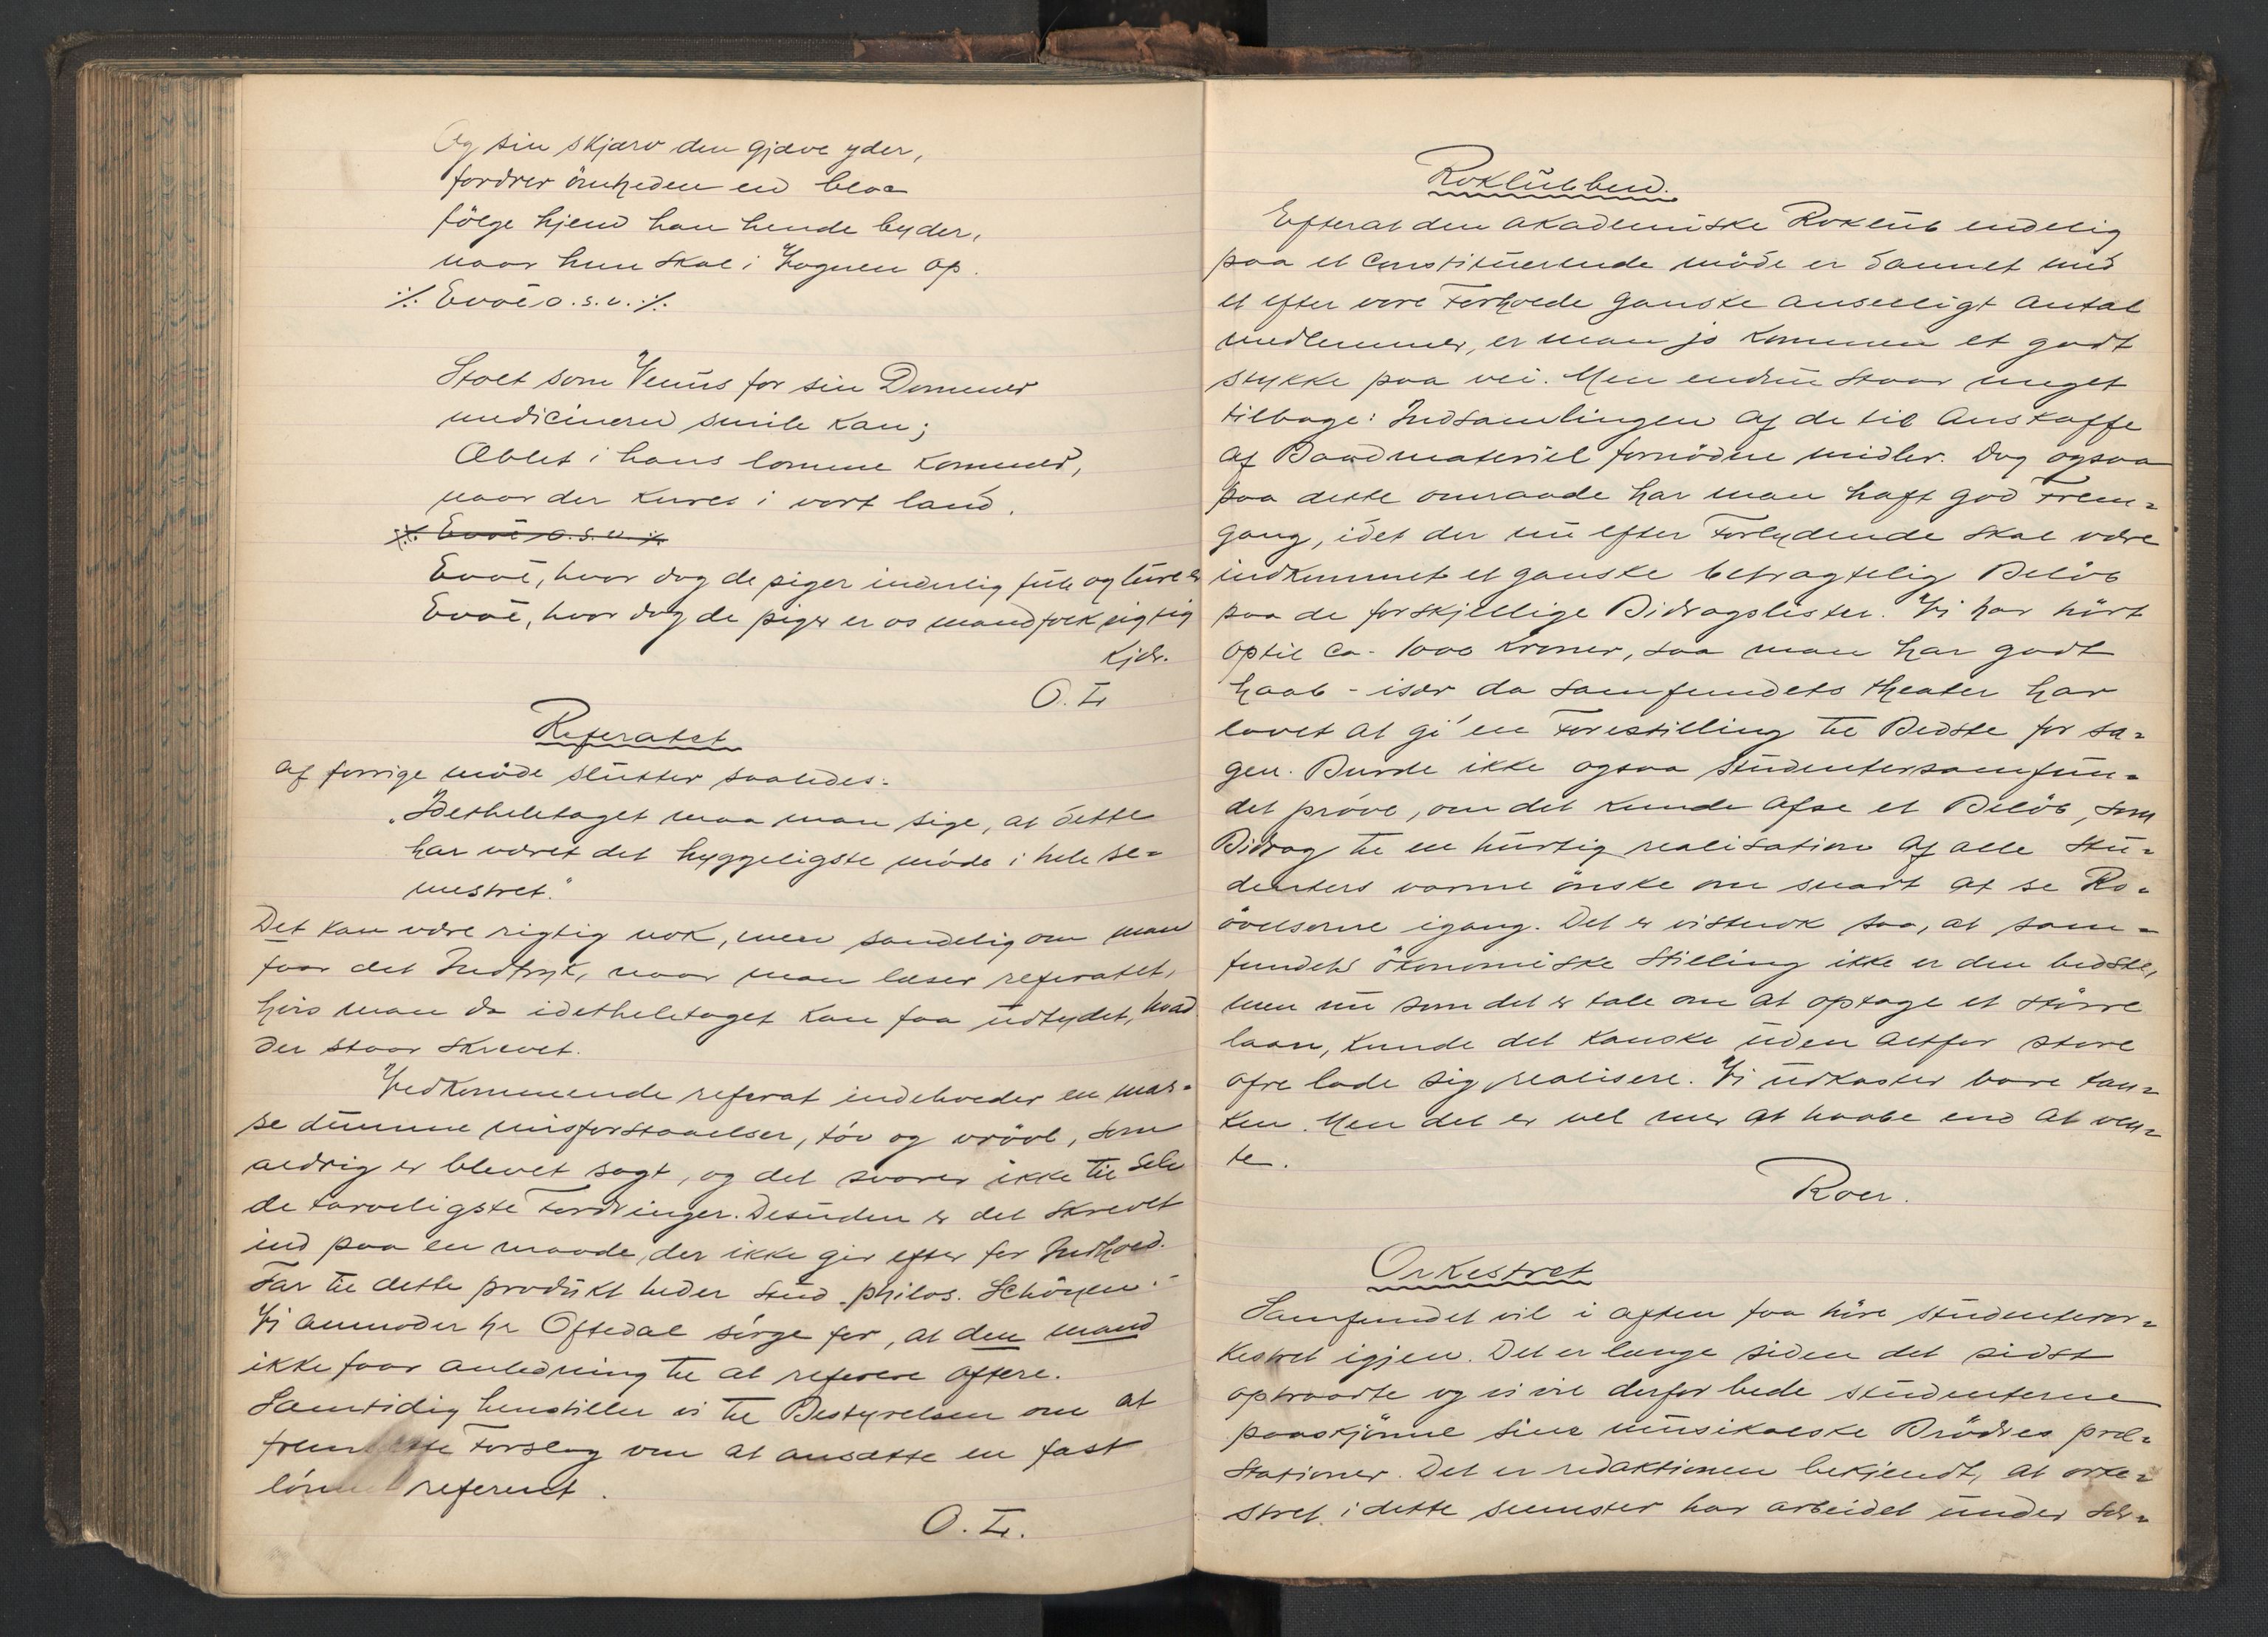 Og sin skjærv den gjæve yder,
fordrer ömheden en
følge hjem han hende byder,
naar hun skal i Vognen op.
·/. Evoë o.s.v. ·/.
Stolt som Venus for sin Dommer
medicineren smile kan;
Æblet i hans lomme kommer,
naar der kures i vort land.
·/. Evoë o.s.v. ·/.
Evoë, hvor dog de piger inderlig og
Evoë, hvor dog de piger er os mandfolk rigtig
kjær.
O. L
Referatet
af forrige möde slutter saaledes:
„Idetheletaget maa man sige, at dette
har været det hyggeligste möde i hele se-
mestret."
Det kan være rigtig nok, men sandelig om man
faar det Indtryk, naar man læser referatet,
hvis man da idetheletaget kan faa udtydet, hvad
der staar skrevet.
Vedkommende referat indeholder en mas-
se dumme misforstaaelser, töv og vrövl, som
aldrig er blevet sagt, og det svarer ikke til selv
de tarveligste Fordringer. Desuden er det skrevet
ind paa en maade, der ikke gir efter for Indhold.
Far til dette produkt heder stud. philos. Schöyen.-
Vi anmoder hr Oftedal sörge for, at den mand
ikke faar anledning til at referere oftere.
Samtidig henstiller vi til Bestyrelsen om at
fremsætte Forslag om at ansætte en fast
lönnet referent.
O. L.
Roklubben.
Efterat den akademiske Roklub endelig
paa et constituerende möde er dannet med
et efter vore Forholde ganske anseeligt antal
medlemmer, er man jo kommen et godt
stykke paa vei. Men endnu staar meget
tilbage: Indsamlingen af de til Anskaffe
af Baadmateriel fornödne midler. Dog ogsaa
paa dette omraade har man haft god Frem-
gang, idet der nu efter Forlydende skal være
indkommet et ganske betragtelig Belöb
paa de forskjellige Bidragslister. Vi har hört
optil ca. 1000 kroner, saa man har godt
haab - især da Samfundets theater har
lovet at gi' en Forestilling til Bedste for sa-
gen. Burde ikke ogsaa Studentersamfun-
det pröve, om det kunde afse et Belöb, som
Bidrag til en hurtig realisation af alle Stu-
denters varme önske om snart at se Ro-
övelserne igang. Det er vistnok saa, at sam-
fundets ökonomiske Stilling ikke er den bedste,
men nu som det er tale om at optage et större
laan, kunde det kanske uden altfor store
ofre lade sig realisere. Vi udkaster bare tan-
ken. Men det er vel mer at haabe end at ven-
te.
Roer.
Orkestret
Samfundet vil i aften faa höre studenteror-
kestret igjen. Det er længe siden det sidst
optraadte og vi vil derfor bede studenterne
paaskjönne sine musikalske Brödres præ-
stationer. Det er redaktionen bekjendt, at orke-
stret i dette semester har arbeidet under sær-